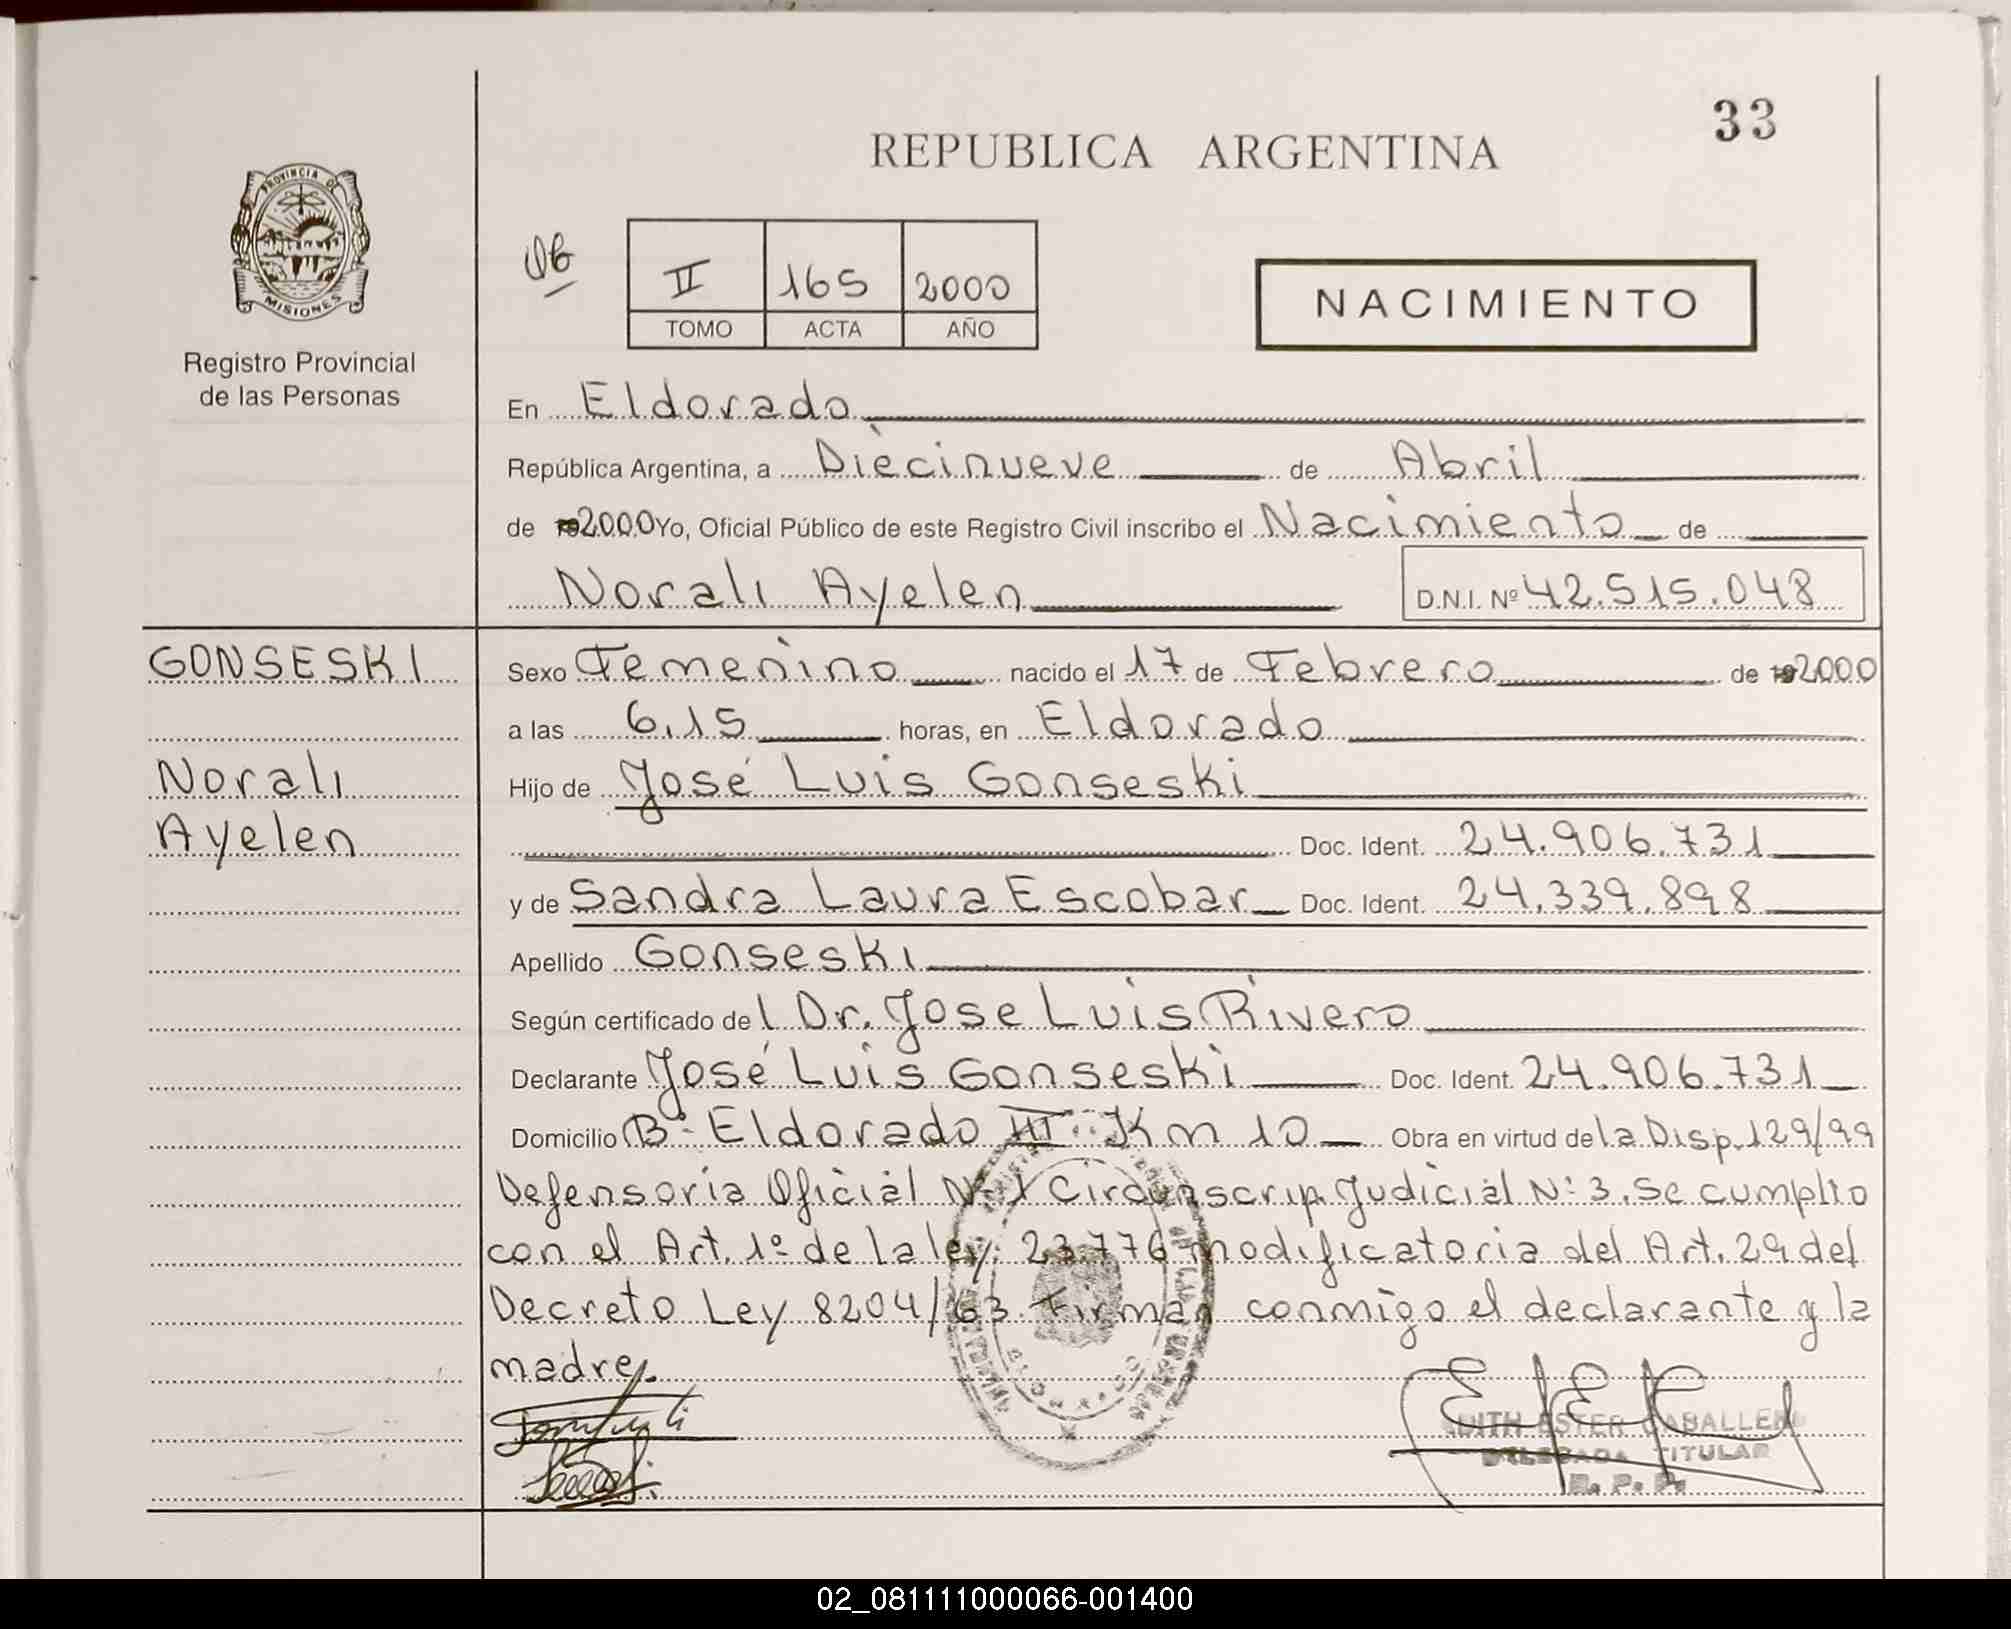 33
REPUBLICA ARGENTINA
PROVINCIA DE
MISIONES
Registro Provincial
de las Personas
II 165 2000
TOMO ACTA AÑO
NACIMIENTO
En Eldorado
República Argentina, a Diecinueve de Abril
de 2000 Yo, Oficial Público de este Registro Civil inscribo el Nacimiento de
Norali Ayelen D.N.I. Nº 42.515.048
GONSESKI
Norali
Ayelen
Sexo Femenino nacido el 17 de Febrero de 2000
a las 6.15 horas, en Eldorado
Hijo de José Luis Gonseski
Doc. Ident. 24.906.731
y de Sandra Laura Escobar Doc. Ident. 24.339.898
Apellido Gonseski
Según certificado del Dr. Jose Luis Rivero
Declarante José Luis Gonseski Doc. Ident. 24.906.731
Domicilio Bº Eldorado III Km 10 Obra en virtud de la Disp. 129/99
Defensoria Oficial Nº 1 Circunscrip. Judicial Nº 3. Se cumplio
con el Art. 1º de la ley 23.776 modificatoria del Art. 29 del
Decreto Ley 8204/63 Firman conmigo el declarante y la
madre.
EDITH ESTER CABALLERO
DELEGADA TITULAR
R. P. P.
02_081111000066-001400